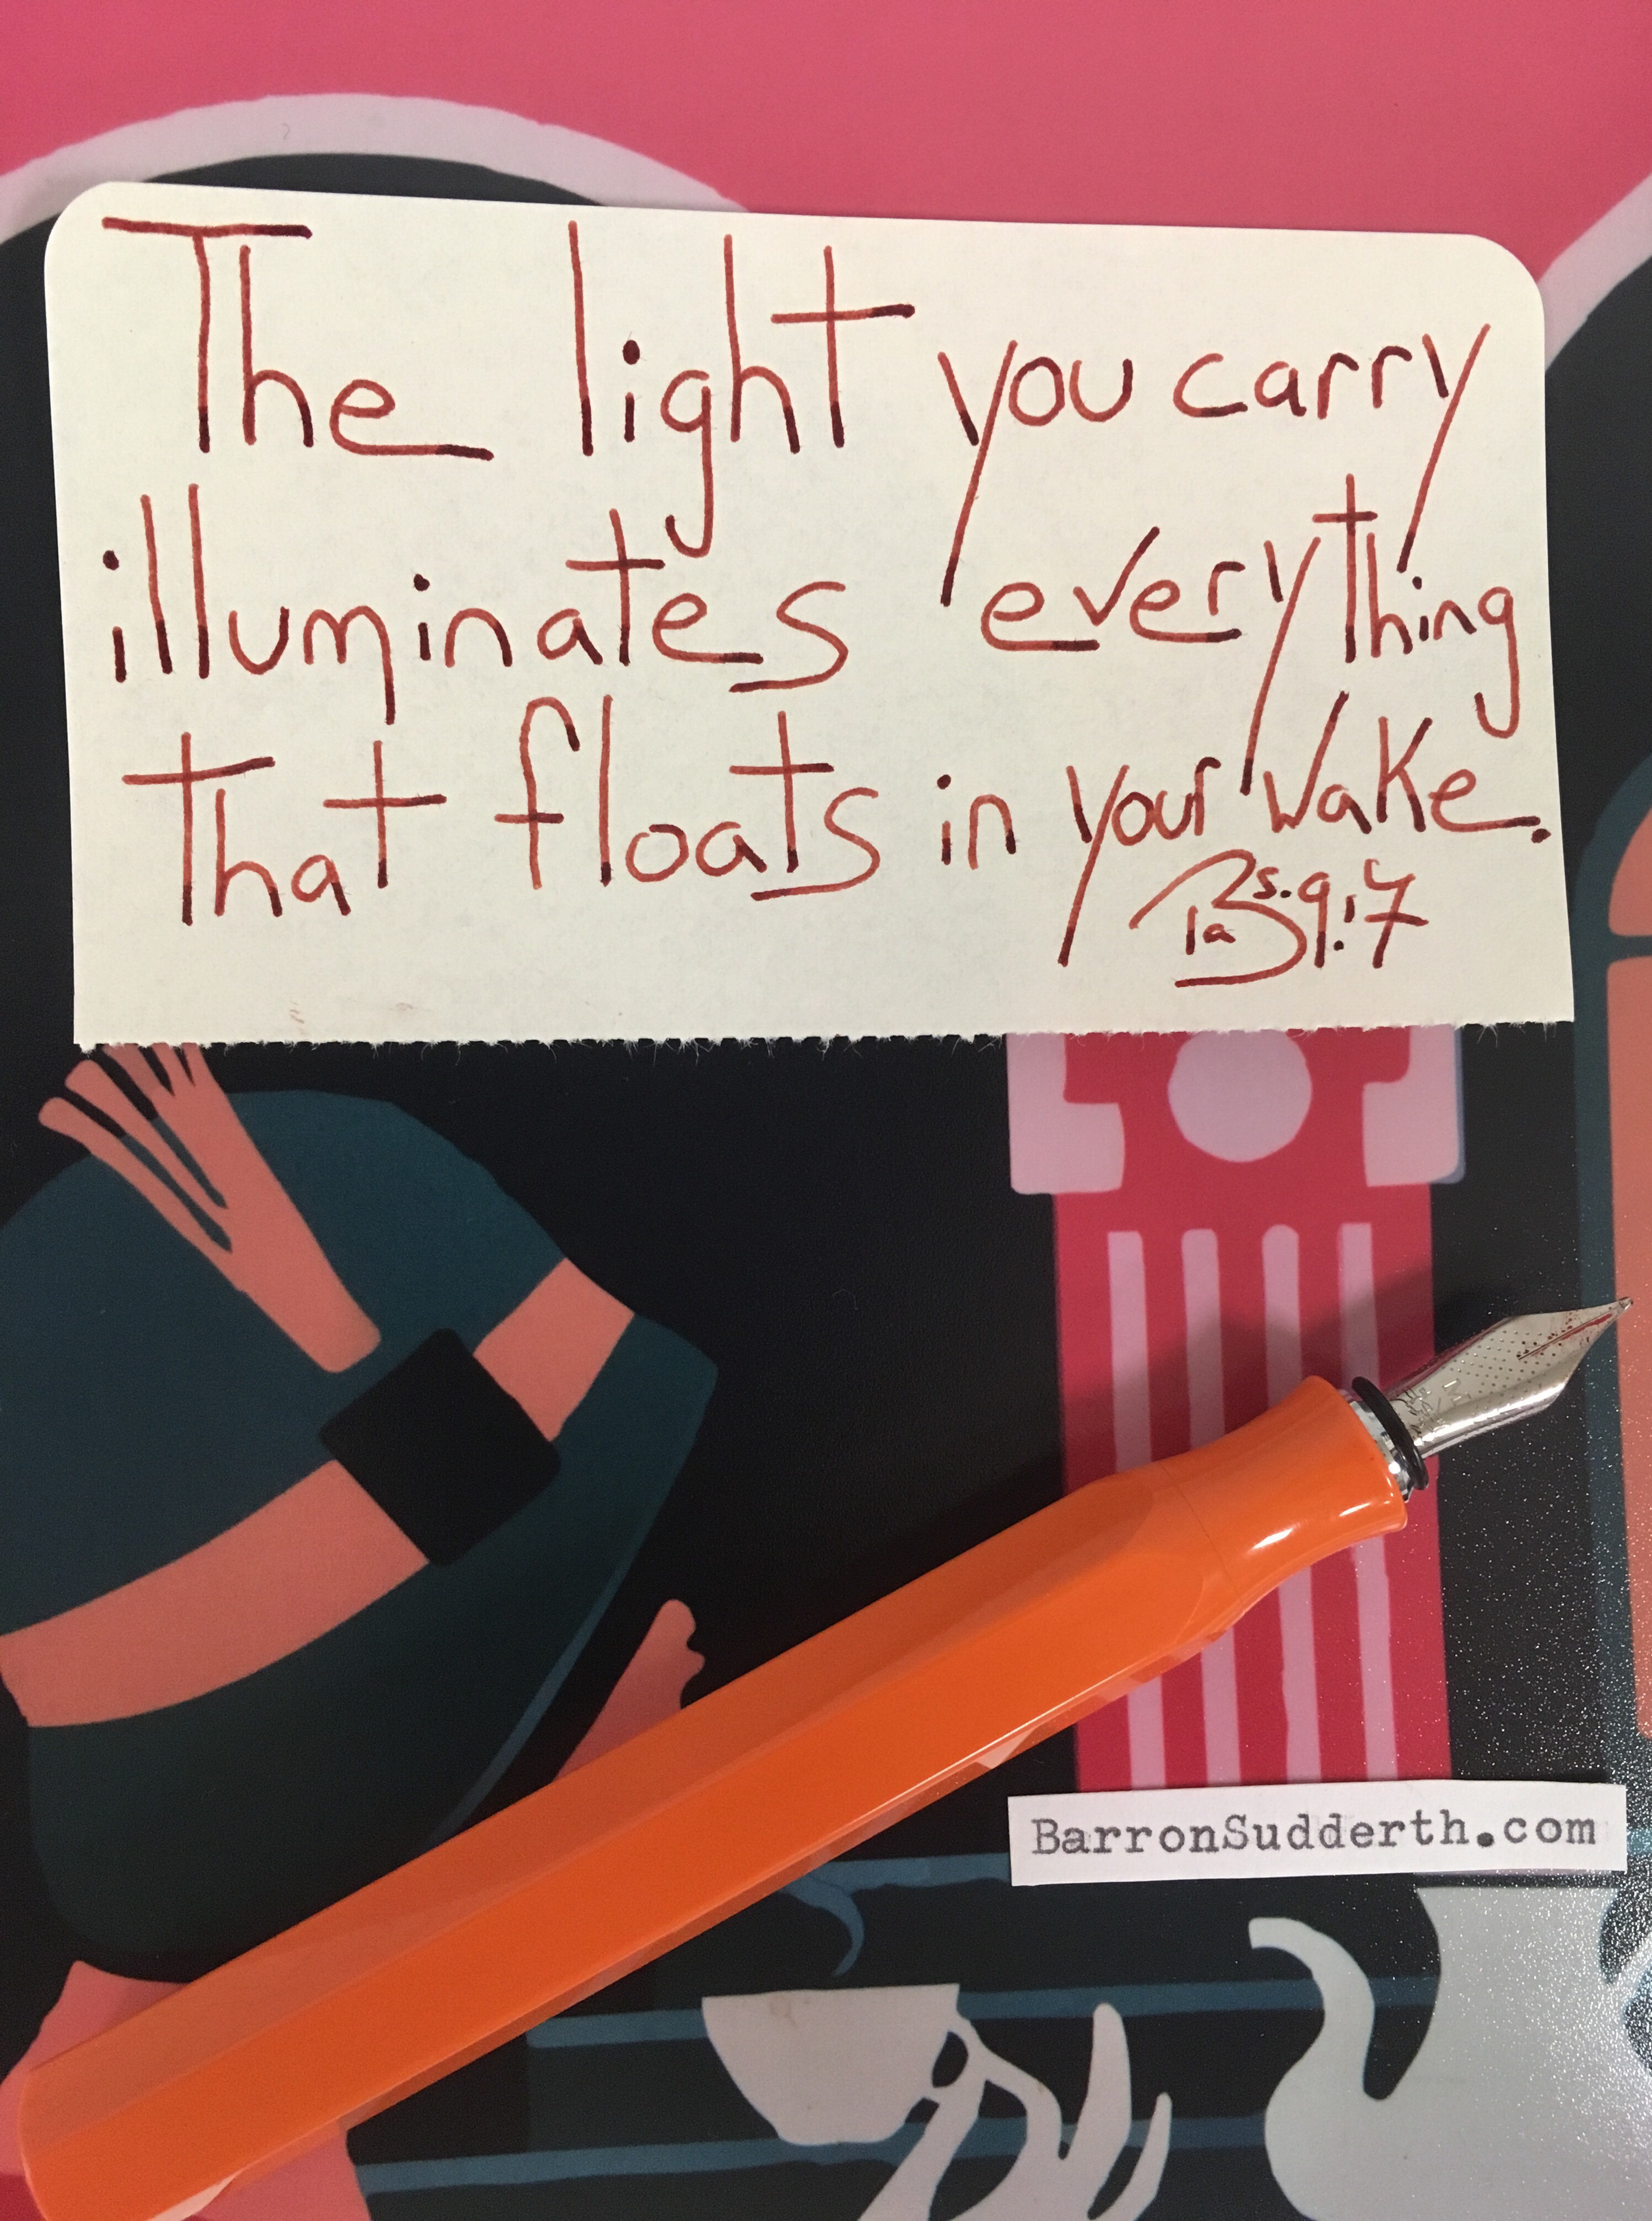 The light you carry
illuminates everything
that floats in your wake.
BarronSudderth.com